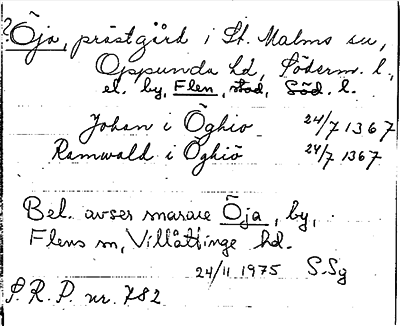 ?Öja, prästgård i St. Malms sn,
Oppunda hd, Söderm. l.,
el. by, Flen, stad, Söd. l.
Johan i Öghio 24/7 1367
Ramwald i Öghiö 24/7 1367
Bel. avser snarare Öja, by,
Flens sn, Villåttinge hd.
24/11 1975 S.Sg
S.R.P. nr. 782